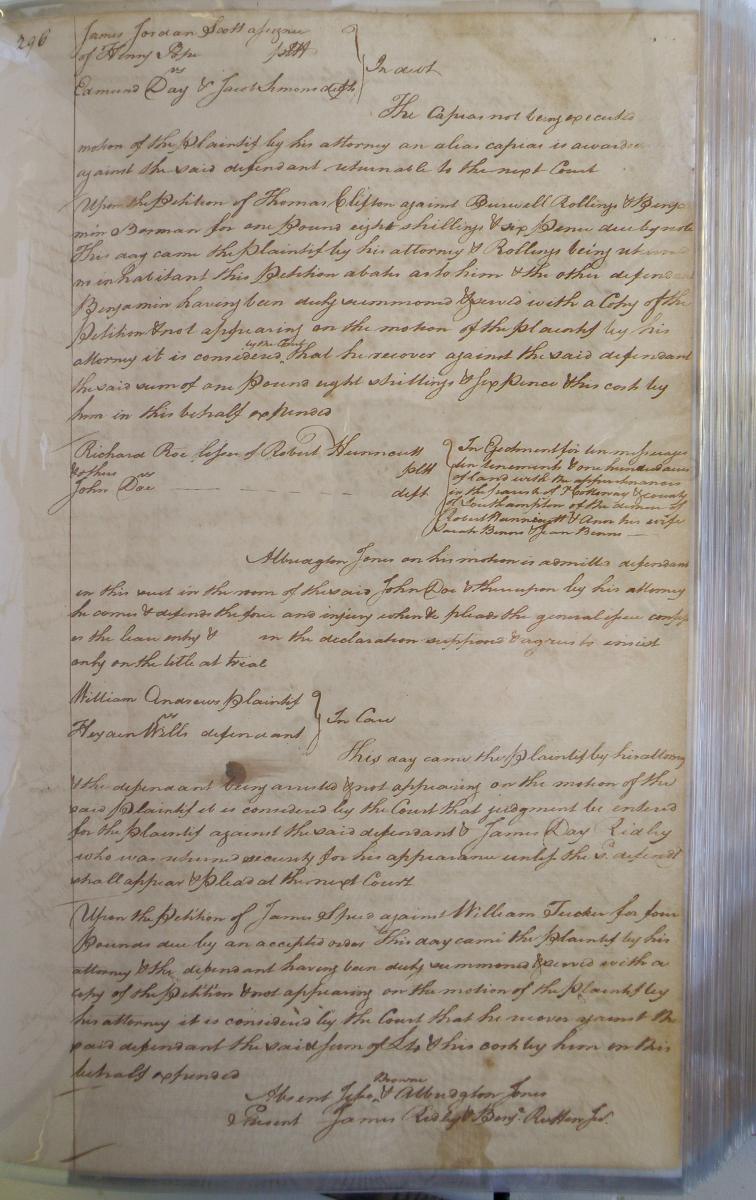 296
James Jordan Scott assignee
of Henry Pope pltff
vs
Edmund Day & Jacob Simons defts
In debt
The Capias not being executed
motion of the Plaintif by his attorney an alias capias is awarded
against the said defendant returnable to the next Court
Upon the Petition of Thomas Clifton against Burwell Rollings & Benja
min Dorman for one Pound eight shillings & six Pence due by note
This day came the Plaintif by his attorney & Rollings being returned
no inhabitant this Petition abates as to him & the other defendant
Benjamin having been duly summoned & served with a Copy of the
Petition & not appearing on the motion of the plaintif by his
by the Court
attorney it is considered that he recover against the said defendant
the said sum of one Pound eight shillings & six Pence & his costs by
him in this behalf expended
Richard Roe lessee of Robert Hunnicutt
& others pltf
vs
John Doe deft
In Ejectment for ten messuages
ten tenements & one hundred acres
of land with the appurtenances
in the parish of Nottoway & county
of Southampton of the demise of
Robert Hunnicutt & Ann his wife
Sarah Binns & Jean Binns
Albridgton Jones on his motion is admitted defendant
in this suit in the room of the said John Doe & thereupon by his attorney
he comes & defends the force and injury when & pleads the general issue confess
es the lease entry & in the declaration supposed & agrees to insist
only on the title at trial
William Andrews plaintif
vs
Wills defendant
In Case
This day came the Plaintif by his attorney
& the defendant being arrested & not appearing on the motion of the
said Plaintif it is considered by the Court that judgment be entered
for the plaintif against the said defendant & James Day Ridley
who was returned security for his appearance unless the sd. defendt
shall appear & plead at the next Court
Upon the Petition of James Speed against William Tucker for four
Pounds due by an accepted order This day came the Plaintif by his
attorney & the defendant having been duly summoned & served with a
copy of the Petition & not appearing on the motion of the Plaintif by
his attorney it is considered by the Court that he recover against the
said defendant the said sum of & his costs by him in this
behalf expended
Absent Jesse Browne & Albridgton Jones
Present James Ridley & Benja. Ruffin Jr.